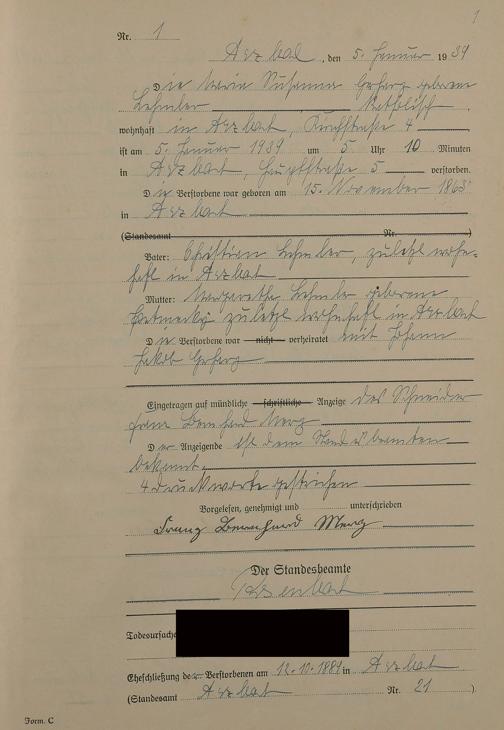 1
Nr. 1
Arzbach, den 5. Januar 1939
Die Maria Susanna geborene
katholisch
wohnhaft in Arzbach, Kirchstraße 4
ist am 5. Januar 1939 um 5 Uhr 10 Minuten
in Arzbach, Hauptstraße 5 verstorben.
Die Verstorbene war geboren am 15. November 1863
in Arzbach
(Standesamt Nr. )
Vater: Christian zuletzt wohn-
haft in Arzbach
Mutter: Margaretha geborene
zuletzt wohnhaft in Arzbach
Die Verstorbene war nicht verheiratet mit Johann
Jakob
Eingetragen auf mündliche schriftliche Anzeige des Schneider
Franz Bernhard Merz
Der Anzeigende ist dem Standesbeamten
bekannt.
4 Druckworte gestrichen
Vorgelesen, genehmigt und unterschrieben
Franz Bernhard Merz
Der Standesbeamte
Todesursache
Eheschließung der Verstorbenen am 12.10.1889 in Arzbach
(Standesamt Arzbach Nr. 21 )
Form. C